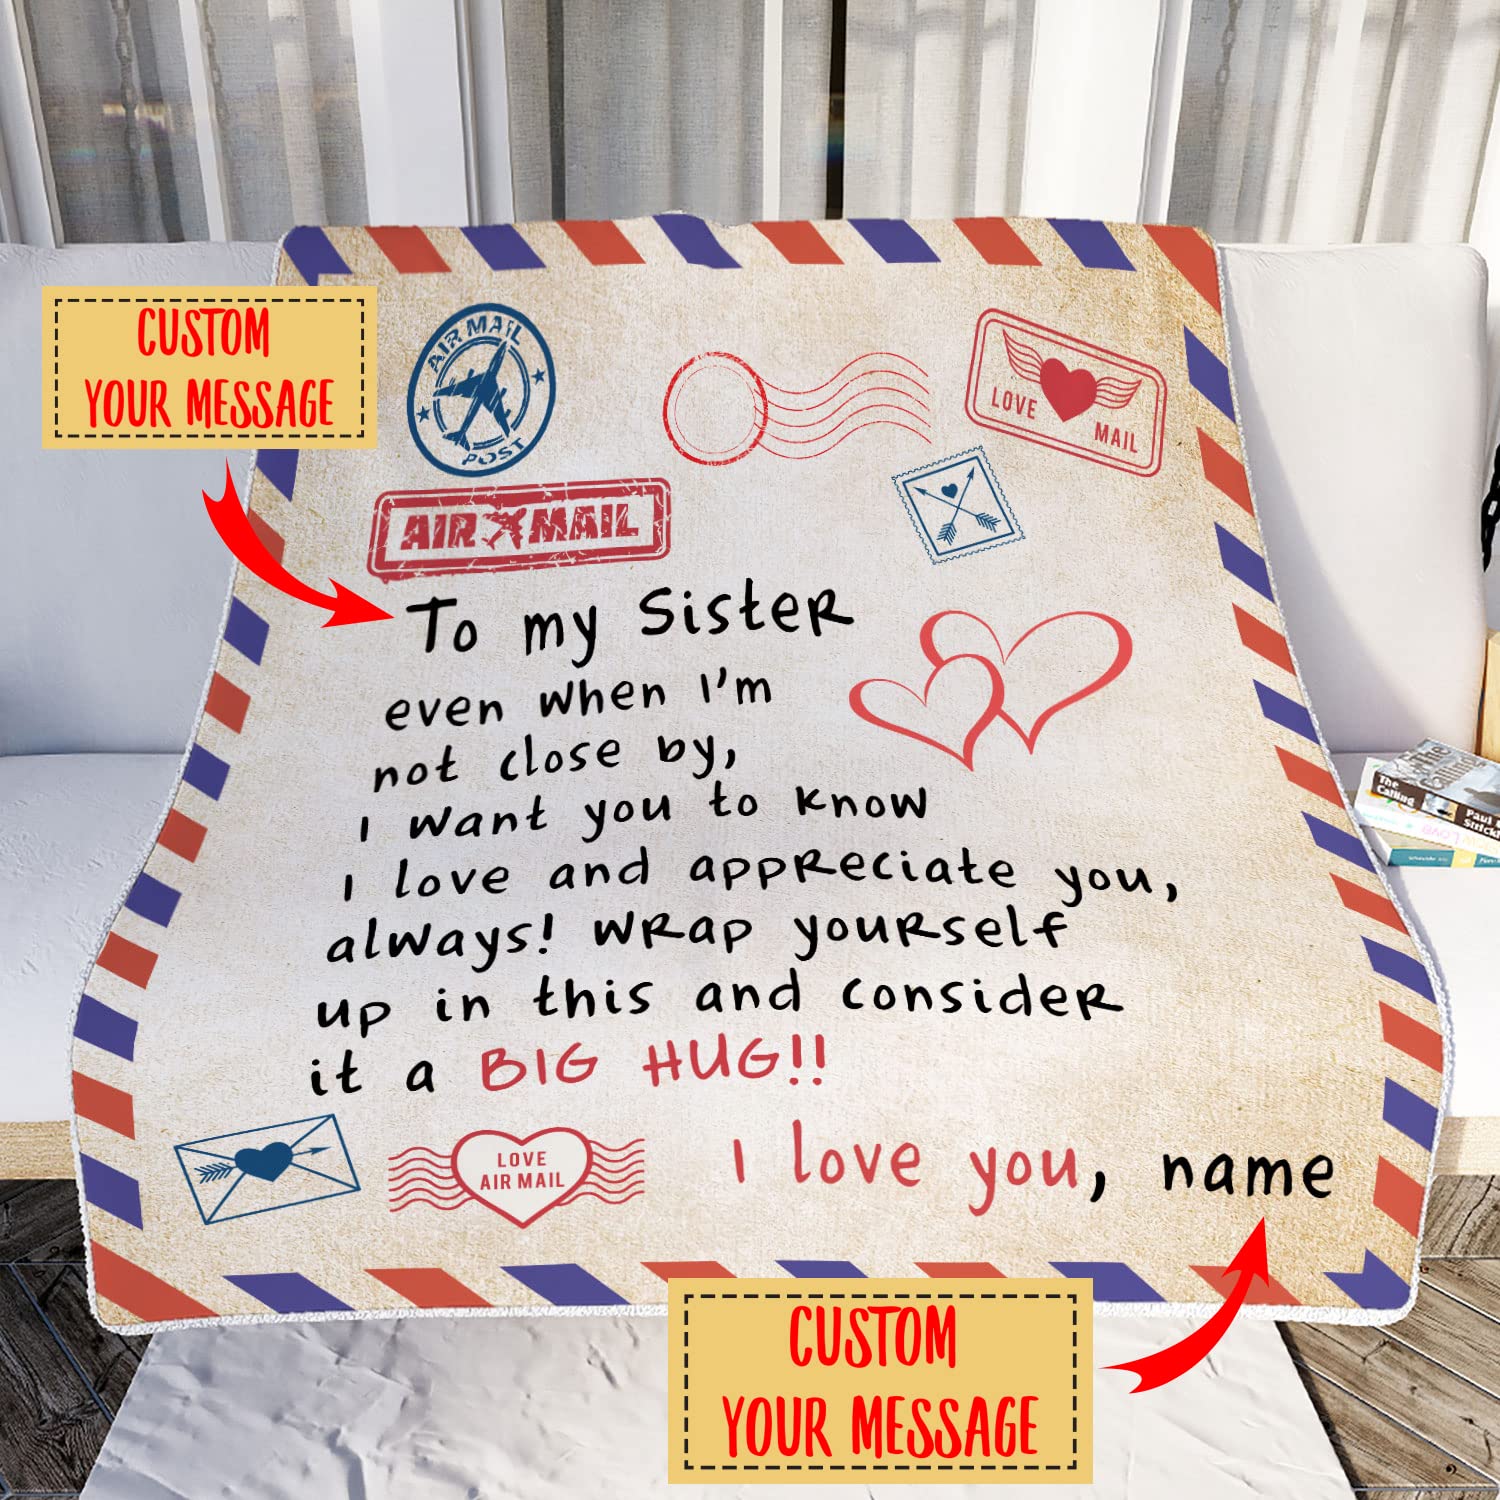 CUSTOM
YOUR MESSAGE
AIR MAIL
POST
LOVE
MAIL
AIR MAIL
To my Sister
even when I'm
not close by,
I want you to know
I love and appreciate you,
always! wrap yourself
up in this and consider
it a BIG HUG!!
LOVE
AIR MAIL
I love you, name
CUSTOM
YOUR MESSAGE
The
Calling
Paul